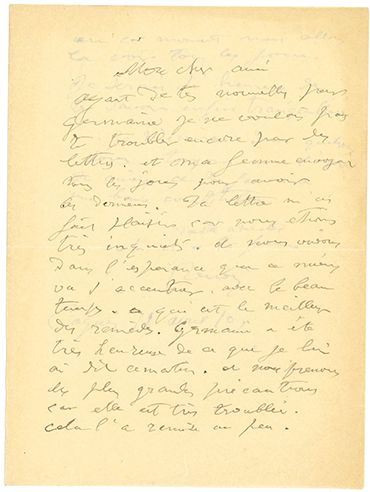 Mon cher ami
ayant de tes nouvelles par
Germaine je ne voulais pas
te troubler encore par des
lettres. et ma femme envoyait
tous les jours pour avoir
les dernières. Ta lettre m'a
fait plaisir, car nous étions
très inquiets. et nous vivons
dans l'espérance que ce mieux
va s'accentuer avec le beau
temps. ce qui est le meilleur
des remèdes. Germaine a été
très heureuse de ce que je lui
ai dit ce matin. et nous prenons
les plus grandes précautions
car elle est très troublée.
cela l'a remise un peu.